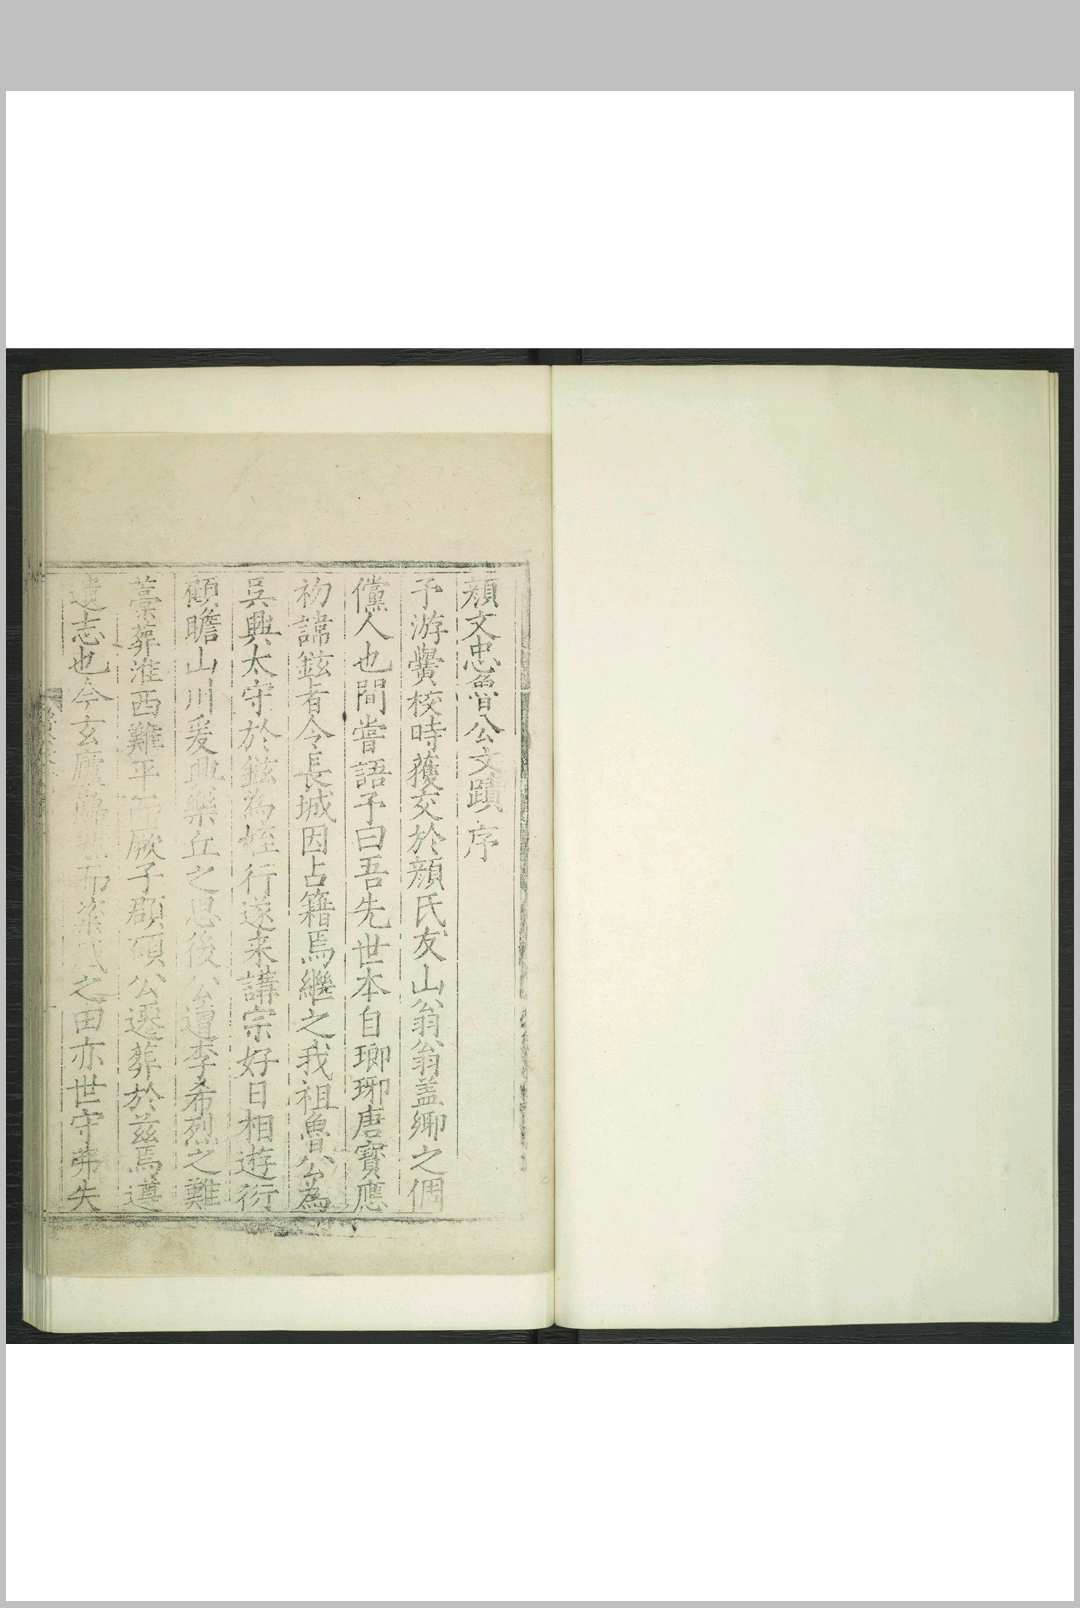 顔文忠魯公文蹟序
予游黌校時獲交於顔氏友山翁翁盖卿之倜
儻人也間嘗語予曰吾先世本自瑯琊唐寳應
初諱鉉者令長城因占籍焉繼之我祖魯公為
吳興太守於鉉為姪行遂来講宗好日相遊衍
顧瞻山川爰興樂丘之思後公遭李希烈之難
藁葬淮西難平而厥子頵碩公遷葬於兹焉遵
遺志也今玄廬 之田亦世守弗失